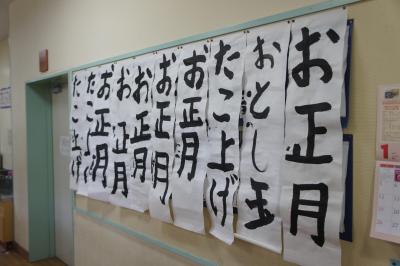 お正月
おとし玉
たこ上げ
お正月
お正月
お正月
お正月
お正月
たこ上げ
たこ上げ
1